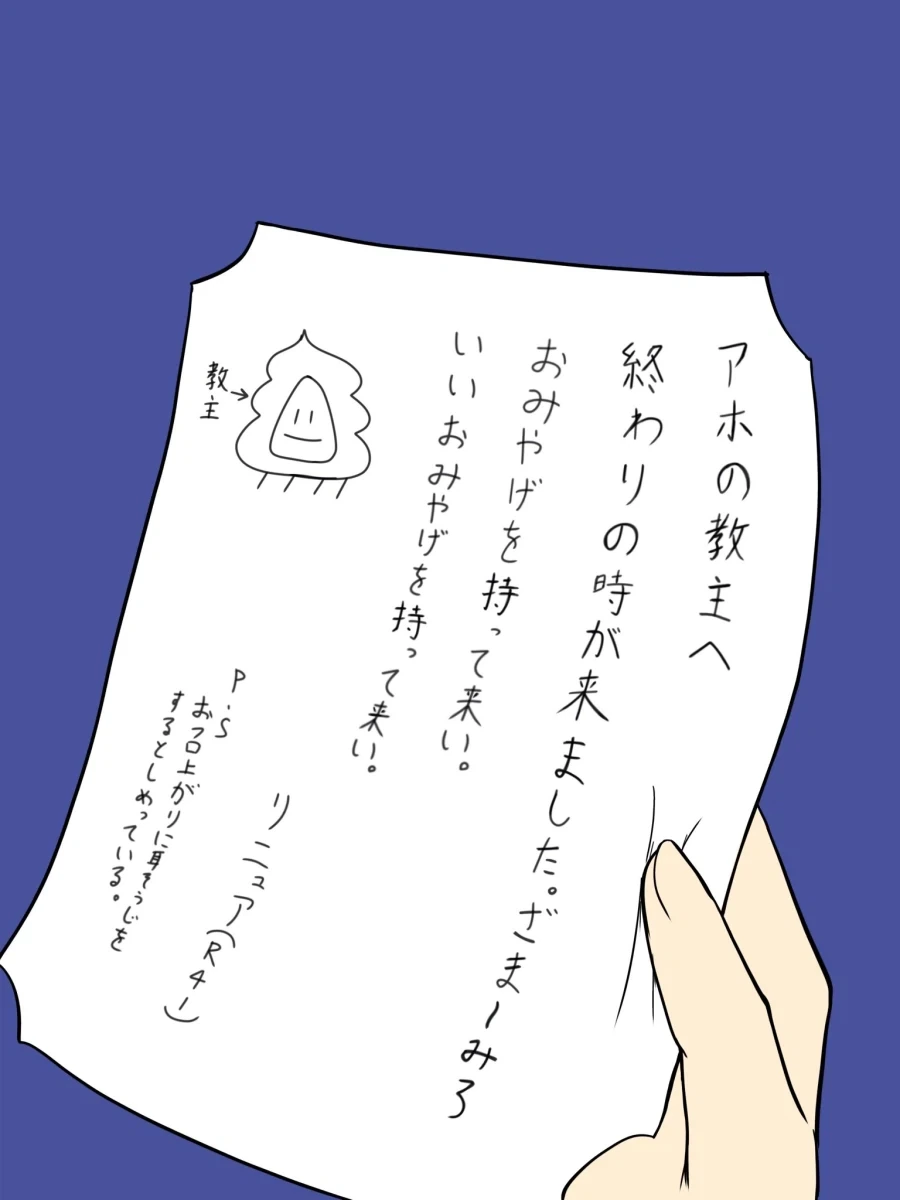 アホの教主へ
終わりの時が来ました。ざまーみろ
おみやげを持って来い。
いいおみやげを持って来い。
教主
リニュア(R41)
P.S
おフロ上がりに耳そうじを
するとしめっている。